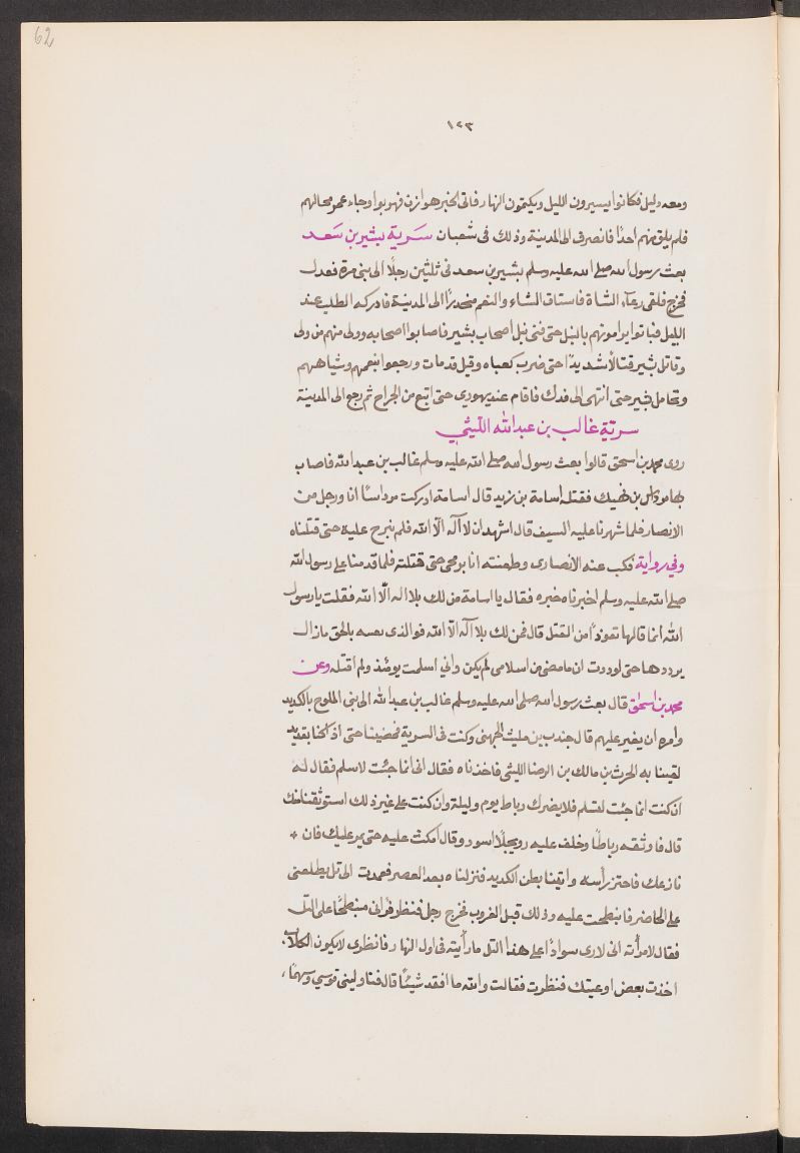 62
١٢٣
ومعه دليل فكانوا يسيرون الليل ويكتمون النهار فاتى الخبر هوازن فهربوا وجاء عمر محالهم
فلم يلق منهم احدًا فانصرف الى المدينة وذلك فى شعبان سرية بشير بن سعد
بعث رسول الله صلى الله عليه وسلم بشير بن سعد فى ثلثين رجلًا الى بنى مرة بفدك
فخرج فلقى رعاء الشاة فاستاق الشاء والنعم منحدرًا الى المدينة فادركه الطلب عند
الليل فباتوا يرامونهم بالنبل حتى فنى نبل اصحاب بشير فاصابوا اصحابه وولى منهم من ولى
وقاتل بشير قتالًا شديدًا حتى ضرب كعباه وقيل قد مات ورجعوا بنعمهم وشياههم
وتحامل بشير حتى انتهى الى فدك فاقام عند يهودي حتى اتبع من الجراح ثم رجع الى المدينة
سرية غالب بن عبد الله الليثي
روى محمد بن اسحق قالوا بعث رسول الله صلى الله عليه وسلم غالب بن عبد الله فاصاب
بها مرداس بن نهيك فقتله اسامة بن زيد قال اسامة ادركت مرداسًا انا ورجل من
الانصار فلما شهرنا عليه السيف قال اشهد ان لا اله الا الله فلم نبرح عليه حتى قتلناه
وفي رواية فكب عنه الانصارى وطعنته انا برمحى حتى قتلته فلما قدمنا على رسول الله
صلى الله عليه وسلم اخبرناه خبره فقال يا اسامة من لك بلا اله الا الله فقلت يا رسول
الله انما قالها تعوذًا من القتل قال فمن لك بلا اله الا الله فوالذى بعثه بالحق مازال
يرددها حتى لوددت ان ما مضى من اسلامى لم يكن واني اسلمت يومئذ ولم اقتله وعن
محمد بن اسحاق قال بعث رسول الله صلى الله عليه وسلم غالب بن عبد الله الى بنى الملوح بالكديد
وامره ان يغير عليهم قال جندب بن مليث الجهنى وكنت فى السرية فمضينا حتى اذا كنا بقديد
لقينا به الحرث بن مالك بن الرضا الليثى فاخذناه فقال انى انما جئت لاسلم فقال له
ان كنت انما جئت لتسلم فلا يضرك رباط يوم وليلة وان كنت على غير ذلك استوثقنا منك
قال فاوثقه رباطًا وخلف عليه رويجلًا اسود وقال امكث عليه حتى يمر عليك فان *
نازعك فاحتز رأسه واتينا بطن الكديد فنزلناه بعد العصر فعمدت الى تل يطلعنى
على الحاضر فانبطحت عليه وذلك قبل الغروب فخرج رجل فنظر فرانى منبطحًا على التل
فقال لامرأته انى لارى سوادًا على هذا التل ما رأيته فى اول النهار فانظرى لا يكون الكلاب
اخذت بعض اوعيتك فنظرت فقالت والله ما افقد شيئًا قال فناولينى قوسي وسهمًا،